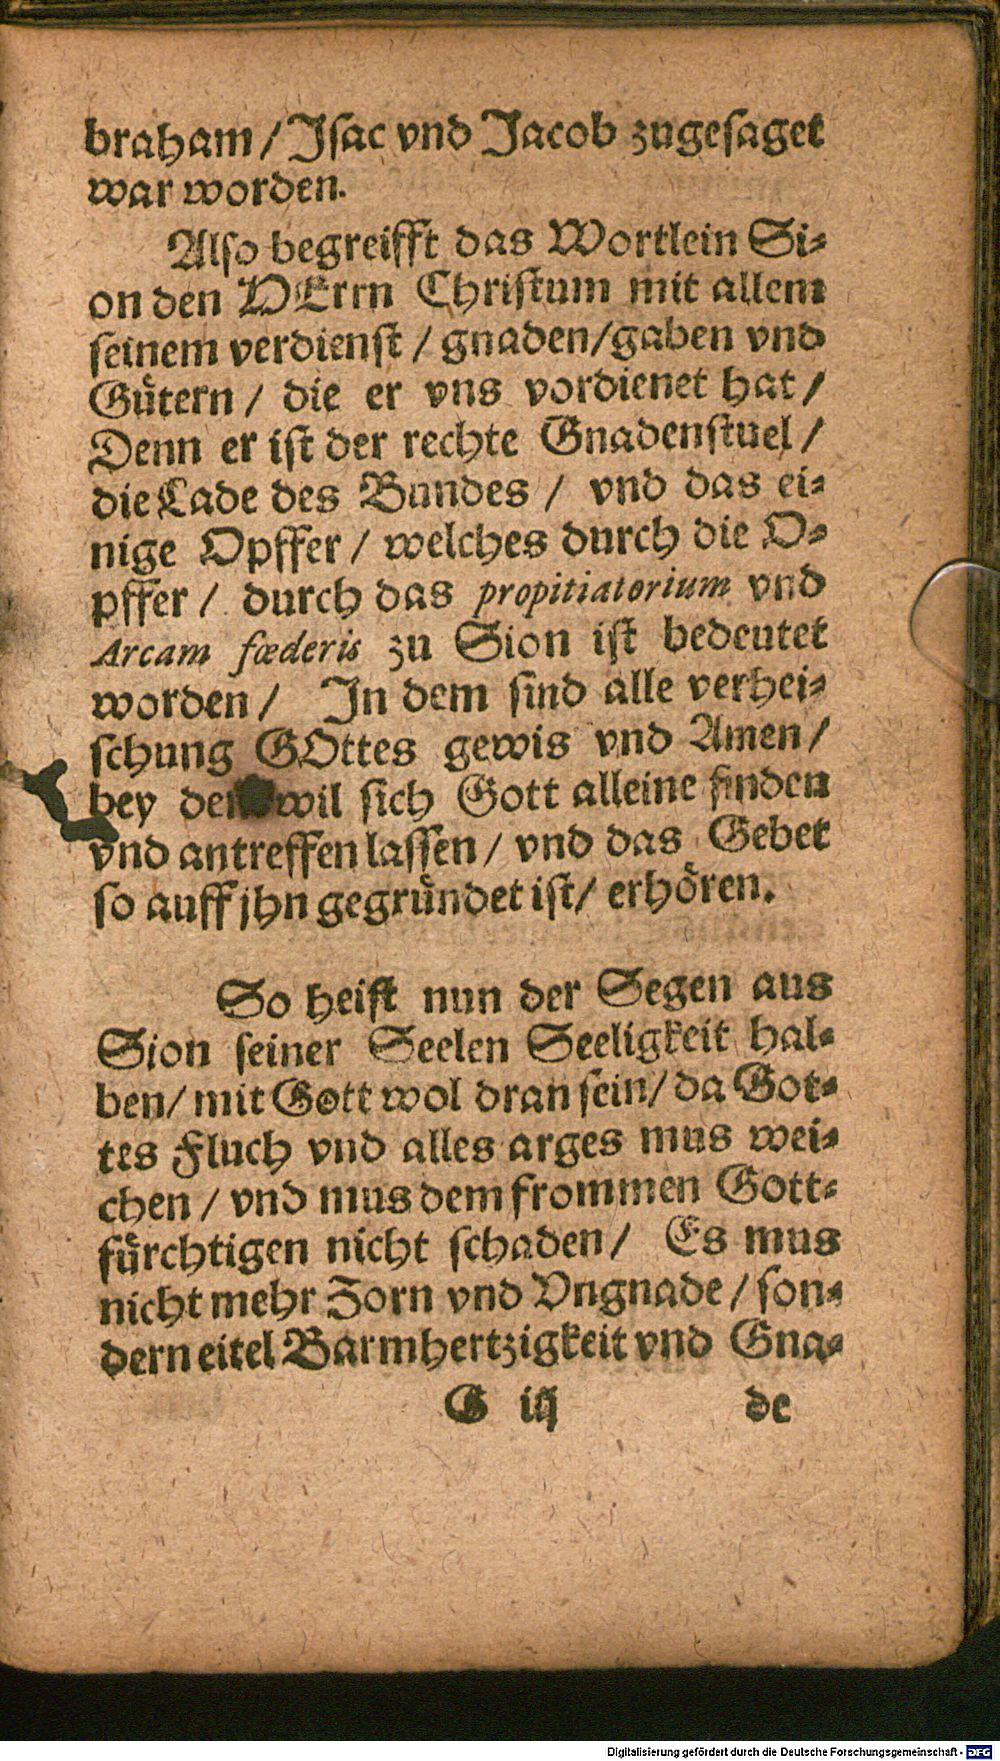 braham / Isac vnd Jacob zugesaget
war worden.
Also begreifft das Wortlein Si-
on den HErrn Christum mit allem
seinem verdienst / gnaden / gaben vnd
Gütern / die er vns vordienet hat /
Denn er ist der rechte Gnadenstuel /
die Lade des Bundes / vnd das ei-
nige Opffer / welches durch die O-
pffer / durch das propitiatorium vnd
Arcam fœderis zu Sion ist bedeutet
worden / In dem sind alle verhei-
schung GOttes gewis vnd Amen /
bey dem wil sich Gott alleine finden
vnd antreffen lassen / vnd das Gebet
so auff jhn gegründet ist / erhören.
So heist nun der Segen aus
Sion seiner Seelen Seeligkeit hal-
ben / mit Gott wol dran sein / da Got-
tes Fluch vnd alles arges mus wei-
chen / vnd mus dem frommen Gott-
fürchtigen nicht schaden / Es mus
nicht mehr Zorn vnd Vngnade / son-
dern eitel Barmhertzigkeit vnd Gna-
G iij de
Digitalisierung gefördert durch die Deutsche Forschungsgemeinschaft - DFG